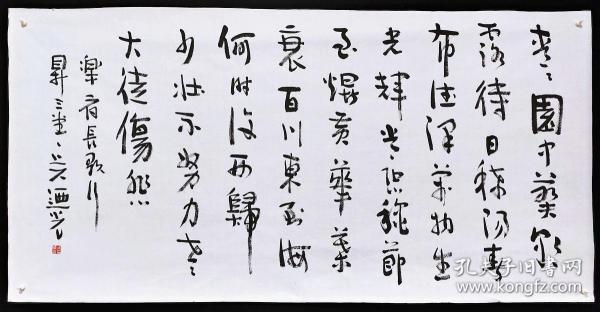 青々園中葵朝
露待日晞陽春
布德澤萬物生
光輝常恐秋節
至焜黃華葉
衰百川東到海
何時復西歸
少壯不努力老
大徒傷悲
樂府長歌行
孔夫子旧书网
www.kongfz.com